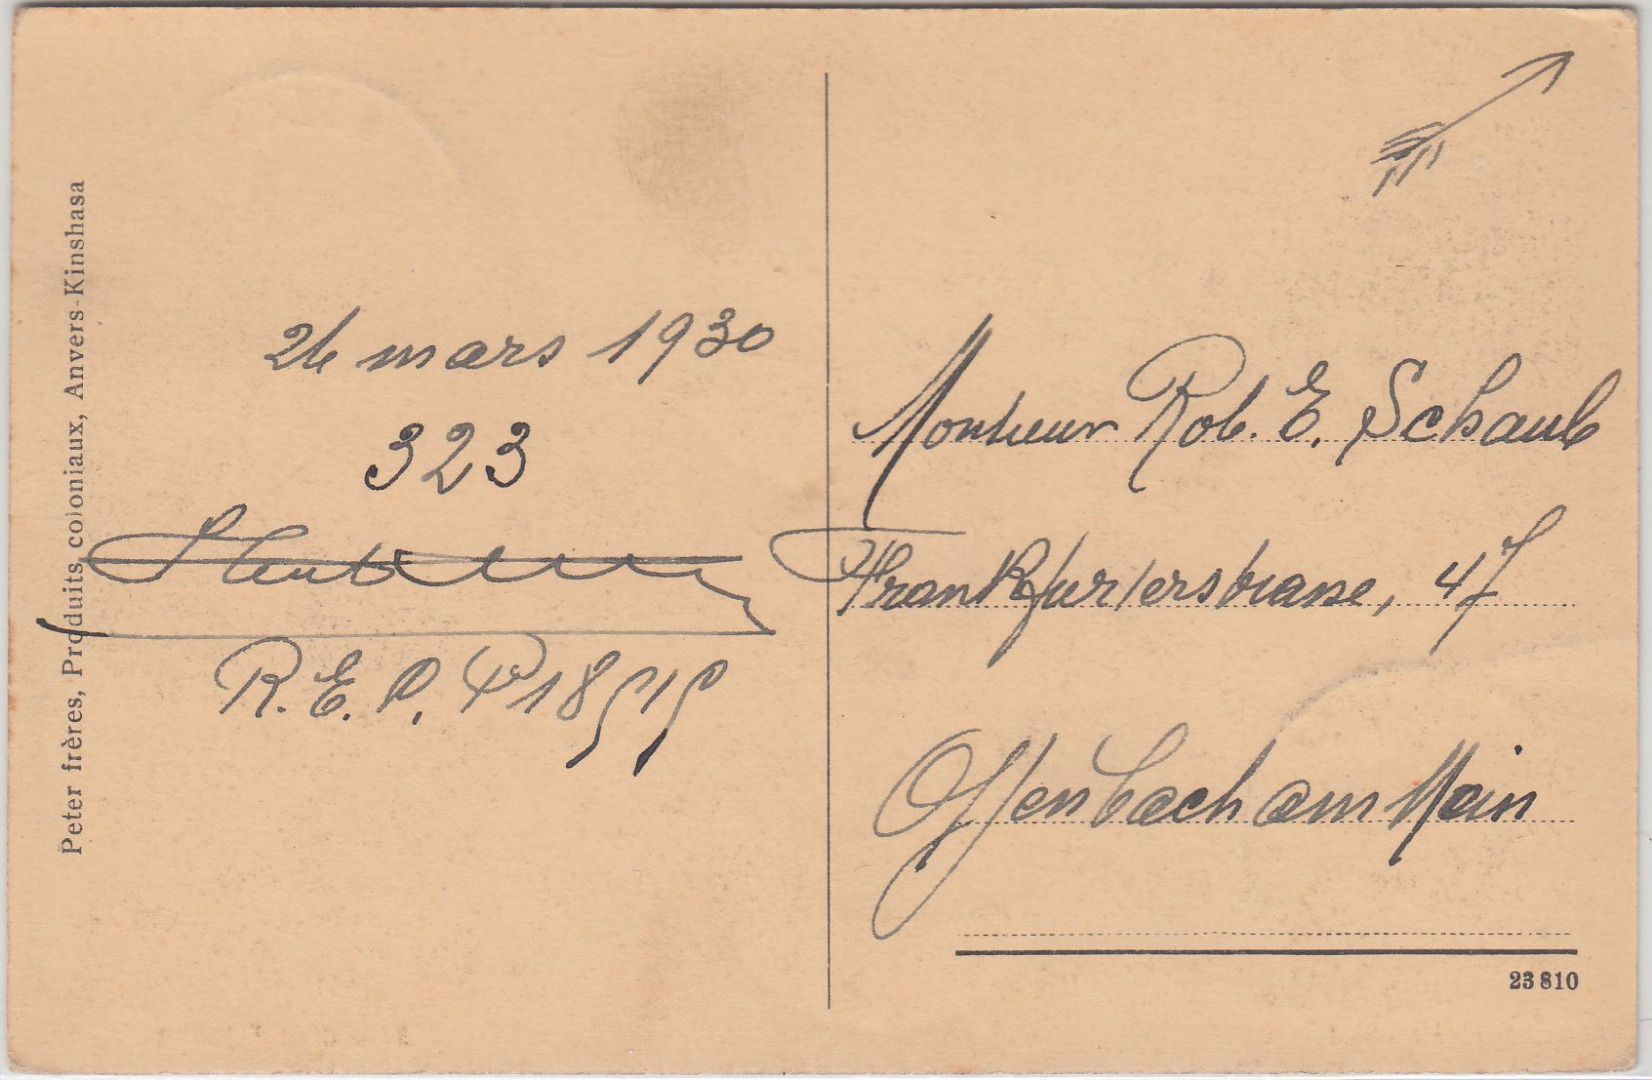 Peter frères, Produits coloniaux, Anvers-Kinshasa
26 mars 1930
323
R.E.P.
Monsieur Rob. E. Schaub
Frankfurterstrasse, 47
Offenbach am Main
23 810